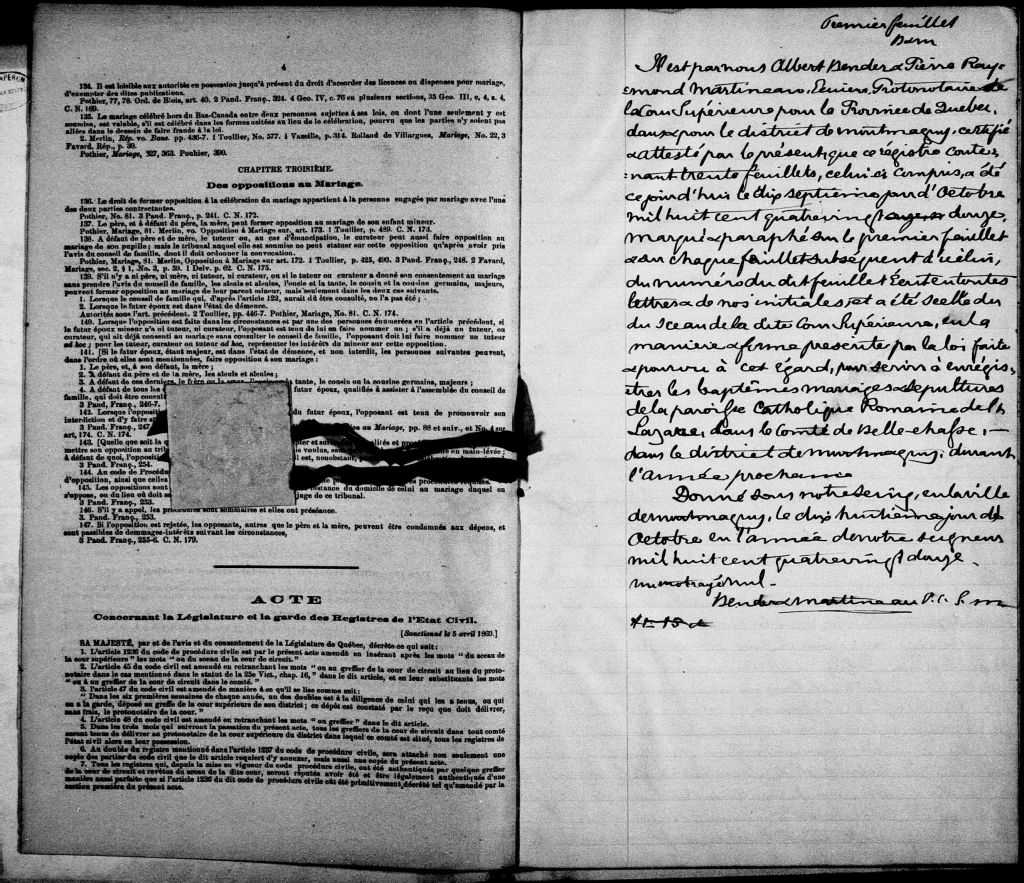 4
134. Il est loisible aux autorités en possession jusqu'à présent du droit d'accorder des licences ou dispenses pour mariage,
d'exempter des dites publications.
Pothier, 77, 78. Ord. de Blois, art. 40. 2 Pand. Franç., 324. 4 Geo. IV, c. 76 en plusieurs sections, 35 Geo. III, c, 4, s. 4,
C. N. 169.
135. Le mariage célébré hors du Bas-Canada entre deux personnes sujettes à ses lois, ou dont l'une seulement y est
soumise, est valable, s'il est célébré dans les formes usitées au lieu de la célébration, pourvu que les parties n'y soient pas
allées dans le dessein de faire fraude à la loi.
2. Merlin, Rép. vo. Bans. pp. 436-7. 1 Toullier, No. 577. 1 Vazeille, p. 314. Rolland de Villargues, Mariage, No. 22, 3
Favard, Rép., p. 30.
Pothier, Mariage, 327, 363. Pouhier, 390.
CHAPITRE TROISIÈME.
Des oppositions au Mariage.
136. Le droit de former opposition à la célébration du mariage appartient à la personne engagée par mariage avec l'une
des deux parties contractantes.
Pothier, No. 81. 3 Pand. Franç., p. 241. C. N. 172.
137. Le père, et à défaut du père, la mère, peut former opposition au mariage de son enfant mineur.
Pothier, Mariage, 81. Merlin, vo. Opposition à Mariage sur, art. 173. 1 Toullier, p. 489. C. N. 173.
138. A défaut de père et de mère, le tuteur ou, au cas d'émancipation, le curateur peut aussi faire opposition au
mariage de son pupille; mais le tribunal auquel elle est soumise ne peut statuer sur cette opposition qu'après avoir pris
l'avis du conseil de famille, dont il doit ordonner la convocation.
Pothier, Mariage, 81. Merlin, Opposition à Mariage sur art. 172. 1 Toullier, p. 425, 490. 3 Pand. Franç., 248. 2 Favard,
Mariage, sec. 2, § 1, No. 3, p. 59. 1 Delv. p. 62. C. N. 175.
139. S'il n'y a ni père, ni mère, ni tuteur, ni curateur, ou si le tuteur ou curateur a donné son consentement au mariage
sans prendre l'avis du conseil de famille, les aïeuls et aïeules, l'oncle et la tante, le cousin et la cousine germains, majeurs,
peuvent former opposition au mariage de leur parent mineur, mais seulement dans les deux cas suivants.
1. Lorsque le conseil de famille qui, d'après l'article 122, aurait dû être consulté, ne l'a pas été;
2. Lorsque le futur époux est dans l'état de démence.
Autorités sous l'art. précédent. 2 Toullier, pp. 446-7. Pothier, Mariage, No. 81. C. N. 174.
140. Lorsque l'opposition est faite dans les circonstances et par une des personnes énumérées en l'article précédent, si
le futur époux mineur n'a ni tuteur, ni curateur, l'opposant est tenu de lui en faire nommer un; s'il a déjà un tuteur, ou
curateur, qui ait déjà consenti au mariage sans consulter le conseil de famille, l'opposant doit lui faire nommer un tuteur
ad hoc; pour les tuteur, curateur ou tuteur ad hoc, représenter les intérêts du mineur sur cette opposition.
141. [Si le futur époux, étant majeur, est dans l'état de démence, et non interdit, les personnes suivantes peuvent,
dans l'ordre où elles sont mentionnées, faire opposition à son mariage:
1. Le père, et, à son défaut, la mère;
2. A défaut du père et de la mère, les aïeuls et aïeules;
3. A défaut de ces derniers, le frère ou la sœur, l'oncle et la tante, le cousin ou la cousine germains, majeurs;
4. A défaut de tous les
futur époux, qualifiés à assister à l'assemblée du conseil de
famille, qui doit être consulté
3 Pand, Franç., 246-7.
142. Lorsque l'opposit
du futur époux, l'opposant est tenu de promouvoir son
interdiction et d'y faire
3 Pand. Franç., 247
Mariage, pp. 88 et suiv., et No. 4 sur
art, 174. C. N. 174.
143. [Quelle que soit la
mettre son opposition au
en main-levée;
à défaut de quoi, l'opposit
3 Pand. Franç., 254.
144. Au code de Procédu
d'opposition, ainsi que celles
procédures requises.
145. Les oppositions sont
domicile de celui au mariage duquel on
s'oppose, ou du lieu où doit se
juge de ce tribunal.
3 Pand. Franç., 253.
146. S'il y a appel, les procédures sont sommaires et elles ont préséance.
3 Pand. Franç., 253.
147. Si l'opposition est rejetée, les opposants, autres que le père et la mère, peuvent être condamnés aux dépens, et
sont passibles de dommages-intérêts suivant les circonstances,
3 Pand. Franç., 255-6. C. N. 179.
ACTE
Concernant la Législature et la garde des Registres de l'Etat Civil.
[Sanctionné le 5 avril 1869.]
SA MAJESTÉ, par et de l'avis et du consentement de la Législature de Québec, décrète ce qui suit:
1. L'article 1236 du code de procédure civile est par le présent acte amendé en insérant après les mots "du sceau de
la cour supérieure" les mots "ou du sceau de la cour de circuit."
2. L'article 45 du code civil est amendé en retranchant les mots "ou au greffier de la cour de circuit au lieu du proto-
notaire dans le cas mentionné dans le statut de la 25e Vict., chap. 16," dans le dit article, et en leur substituants les mots
"ou à un greffier de la cour de circuit dans le comté."
3. l'article 47 du code civil est amendé de manière à ce qu'il se lise comme suit:
"Dans les six premières semaines de chaque année, un des doubles est à la diligence de celui qui les a tenus, ou qui
en a la garde, déposé au greffe de la cour supérieure de son district; ce dépôt est constaté par le reçu que doit délivrer,
sans frais, le protonotaire de la cour."
4. L'article 48 du code civil est amendé en retranchant les mots "ou greffier" dans le dit article.
5. Dans les trois mois qui suivront la passation du présent acte, tous les greffiers de la cour de circuit dans tout comté
seront tenus de délivrer au protonotaire de la cour supérieure du district dans lequel ce comté est situé, tous les registres de
l'état civil alors en leur possession.
6. Au double du registre mentionné dans l'article 1237 du code de procédure civile, sera attaché non seulement une
copie des parties du code civil que le dit article requiert d'y annexer, mais aussi une copie du présent acte.
7. Tous les registres qui, depuis la mise en vigueur du code procédure civile, ont été authentiqués par quelque greffier
de la cour de circuit et revêtus du sceau de la dite cour, seront réputés avoir été et être légalement authentiqués d'une
manière aussi parfaite que si l'article 1236 du dit code de procédure civile eût été primitivement décrété tel qu'amendé par la
section première du présent acte.
Premier feuillet
B & m
Il est par nous Albert Bender & Pierre Ray-
-mond Martineau, Ecuiers, Protonotaire de
la Cour Supérieure pour la Province de Quebec,
dans & pour le district de montmagny, certifié
& attesté par le présent, que ce régistre conte-
-nant trente feuillets, celui-ci compris, a été
ce jourd'hui le dix septième jour d'Octobre
mil huit cent quatrevingt douze,
marqué & paraphé sur le premier feuillet
& sur chaque feuillet subséquent d'icelui,
du numéro du dit feuillet Ecrit en toutes
lettres & de nos initiales, et a été scellé du
du Sceau de la dite Cour Supérieure, en la
manière & forme prescrite par la loi faite
& pourvu à cet égard, pour servir à enrégis-
-trer les baptêmes mariages & sepultures
de la paroisse Catholique Romaine de St
Lazare, dans le Comté de Belle-chasse, —
dans le district de montmagny, durant
l'année prochaine
Donné sous notre Seing, en la ville
de montmagny, le dix huitième jour de
Octobre en l'année de notre seigneur
mil huit cent quatrevingt douze.
un mot rayé nul.
Bender & Martineau P. C. S. m